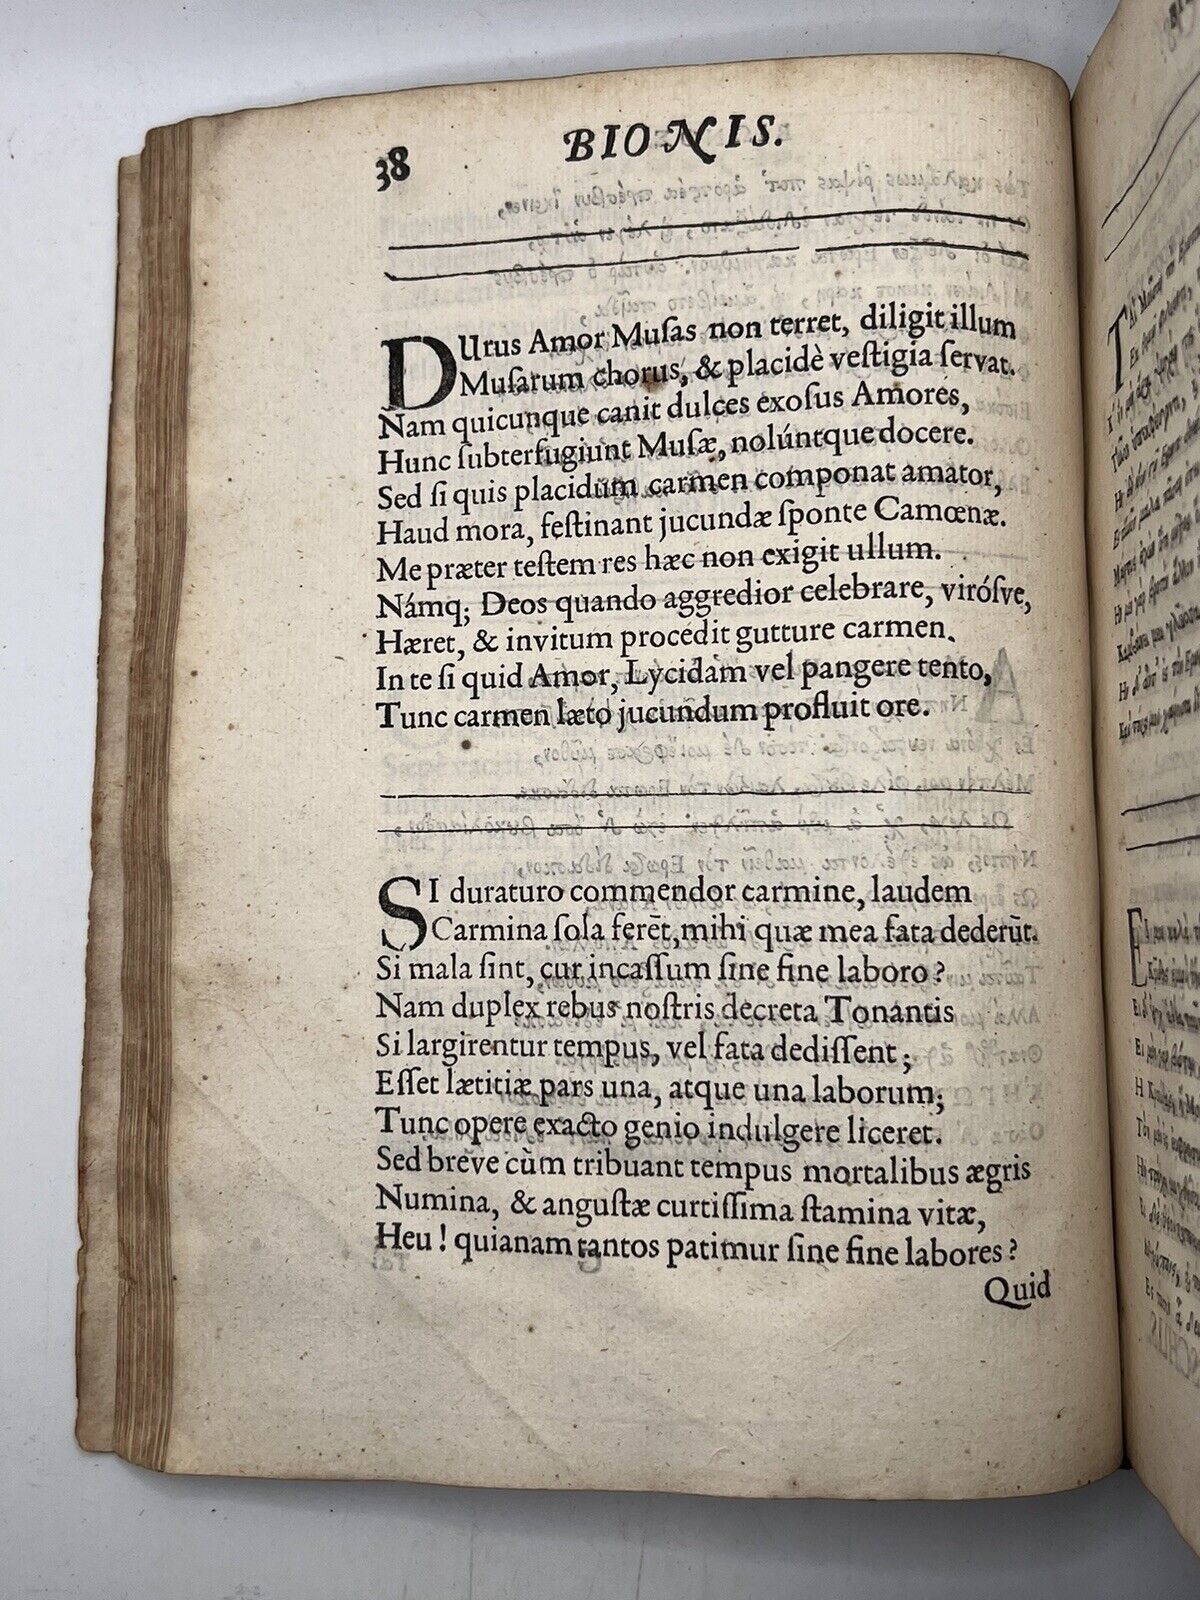 38
BIONIS.
DUrus Amor Muſas non terret, diligit illum
Muſarum chorus, & placidè veſtigia ſervat.
Nam quicunque canit dulces exoſus Amores,
Hunc ſubterfugiunt Muſæ, nolúntque docere.
Sed ſi quis placidum carmen componat amator,
Haud mora, feſtinant jucundæ ſponte Camœnæ.
Me præter teſtem res hæc non exigit ullum.
Námq; Deos quando aggredior celebrare, viróſve,
Hæret, & invitum procedit gutture carmen.
In te ſi quid Amor, Lycidam vel pangere tento,
Tunc carmen læto jucundum profluit ore.
SI duraturo commendor carmine, laudem
Carmina ſola ferēt, mihi quæ mea fata dederūt.
Si mala ſint, cur incaſſum ſine fine laboro?
Nam duplex rebus noſtris decreta Tonantis
Si largirentur tempus, vel fata dediſſent;
Eſſet lætitiæ pars una, atque una laborum;
Tunc opere exacto genio indulgere liceret.
Sed breve cùm tribuant tempus mortalibus ægris
Numina, & anguſtæ curtiſſima ſtamina vitæ,
Heu! quianam tantos patimur ſine fine labores?
Quid